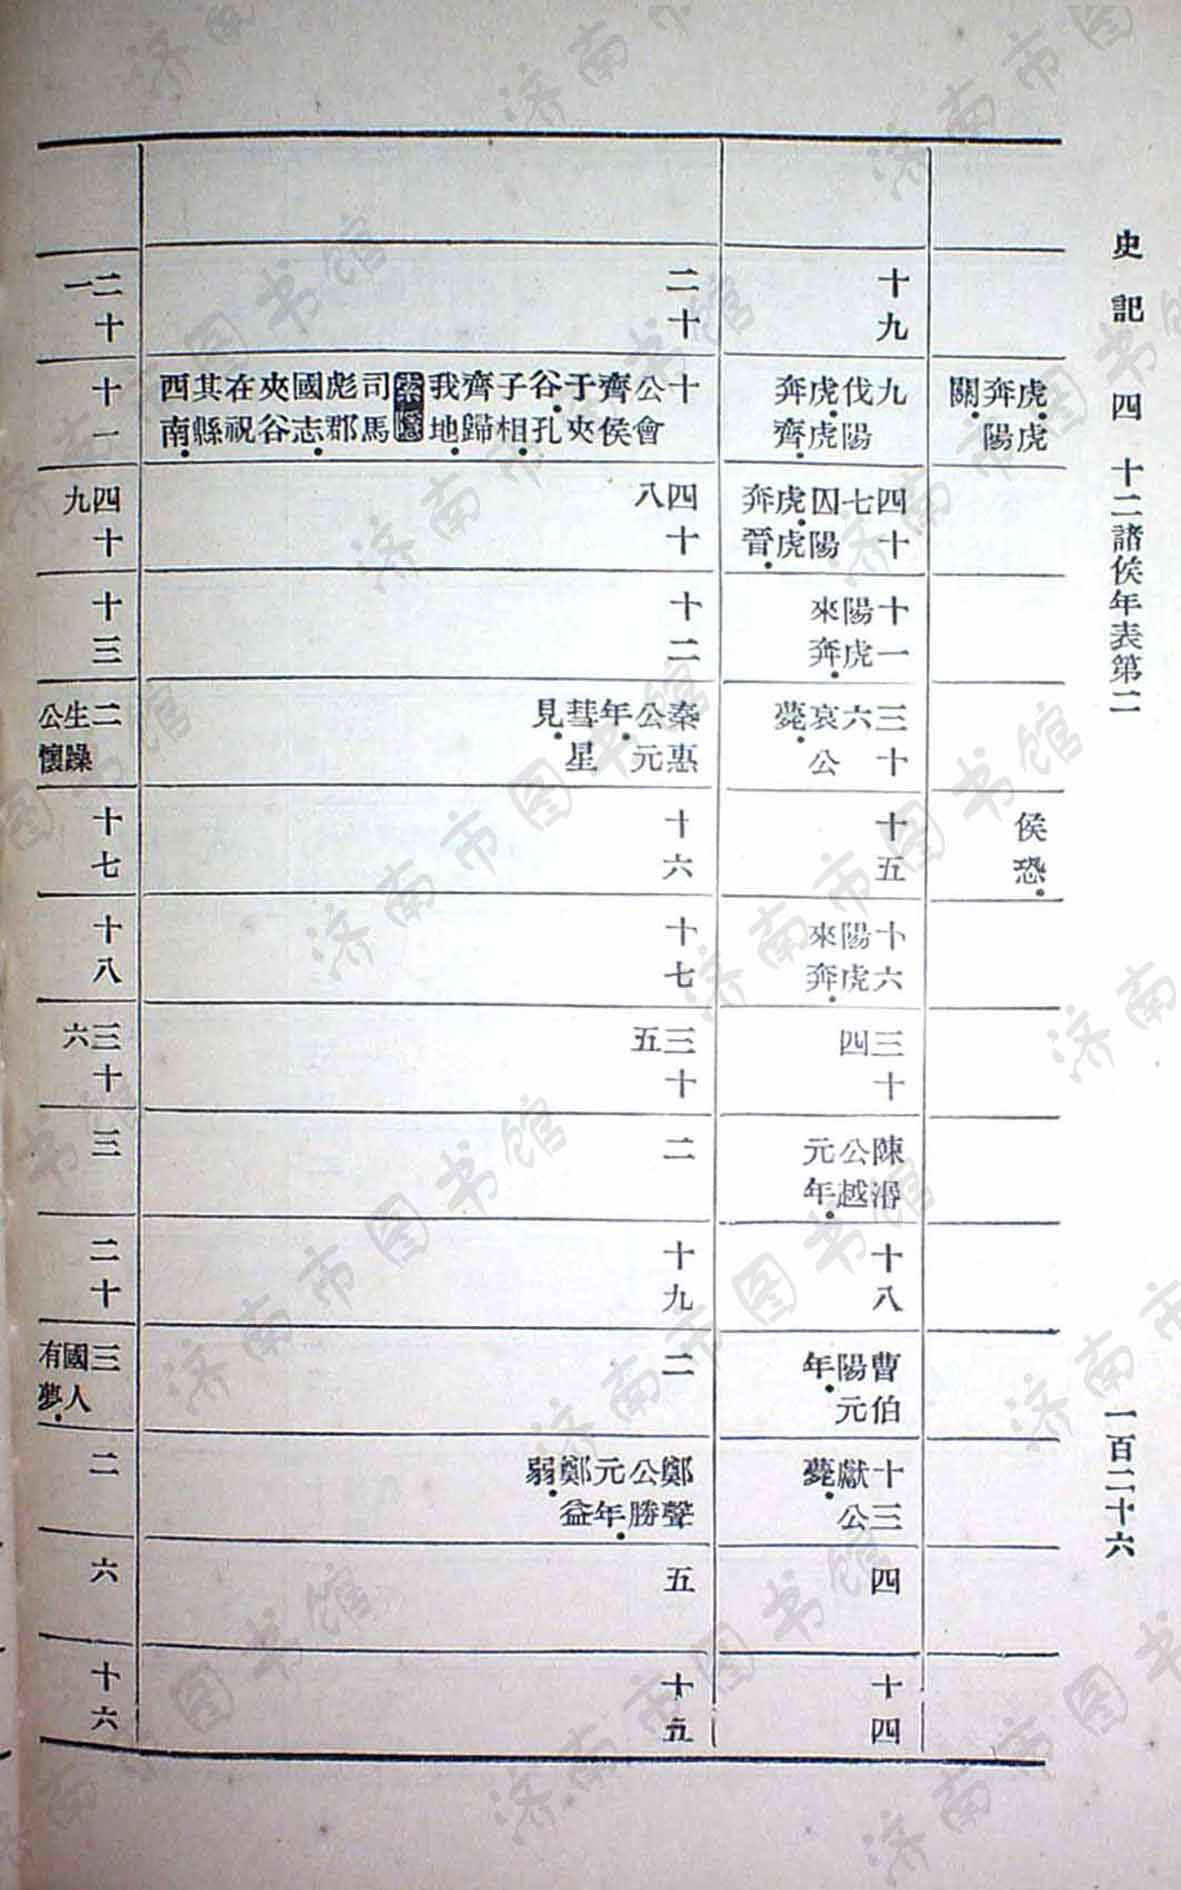 史記四 十二諸侯年表第二 一百二十六
虎虎奔陽關
侯恐
十九
九伐陽虎虎奔齊
四十七囚陽虎虎奔晉
十一陽虎來奔
三十六哀公薨
十五
十六陽虎來奔
三十四
陳湣公越元年
十八
曹伯陽元年
十三獻公薨
四
十四
二十
十公會齊侯于夾谷孔子相齊歸我地索隱司馬彪郡國志夾谷在祝其縣西南
四十八
十二
秦惠公元年彗星見
十六
十七
三十五
二
十九
二
鄭聲公勝元年鄭益弱
五
十五
二十一
十一
四十九
十三
二生躁公懷
十七
十八
三十六
三
二十
三國人有夢
二
六
十六
济南市图书馆